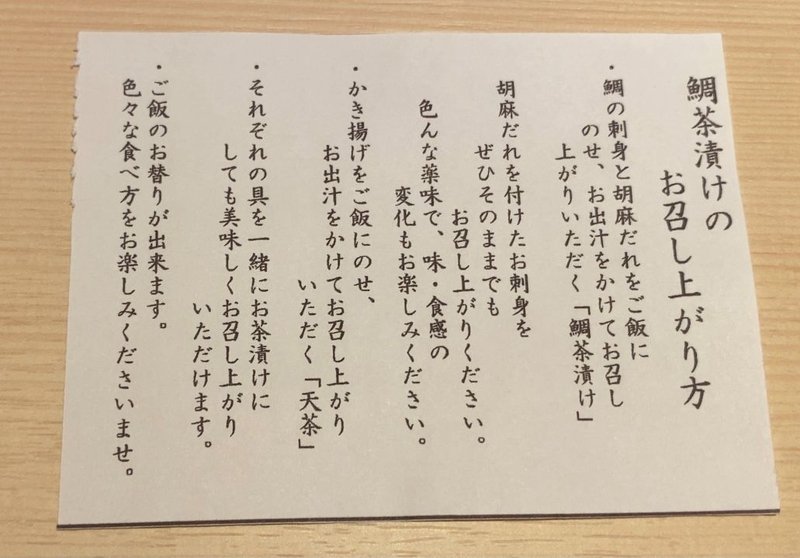 鯛茶漬けの
お召し上がり方
・鯛の刺身と胡麻だれをご飯に
のせ、お出汁をかけてお召し
上がりいただく「鯛茶漬け」
胡麻だれを付けたお刺身を
ぜひそのままでも
お召し上がりください。
色んな薬味で、味・食感の
変化もお楽しみください。
・かき揚げをご飯にのせ、
お出汁をかけてお召し上がり
いただく「天茶」
・それぞれの具を一緒にお茶漬けに
しても美味しくお召し上がり
いただけます。
・ご飯のお替りが出来ます。
色々な食べ方をお楽しみくださいませ。